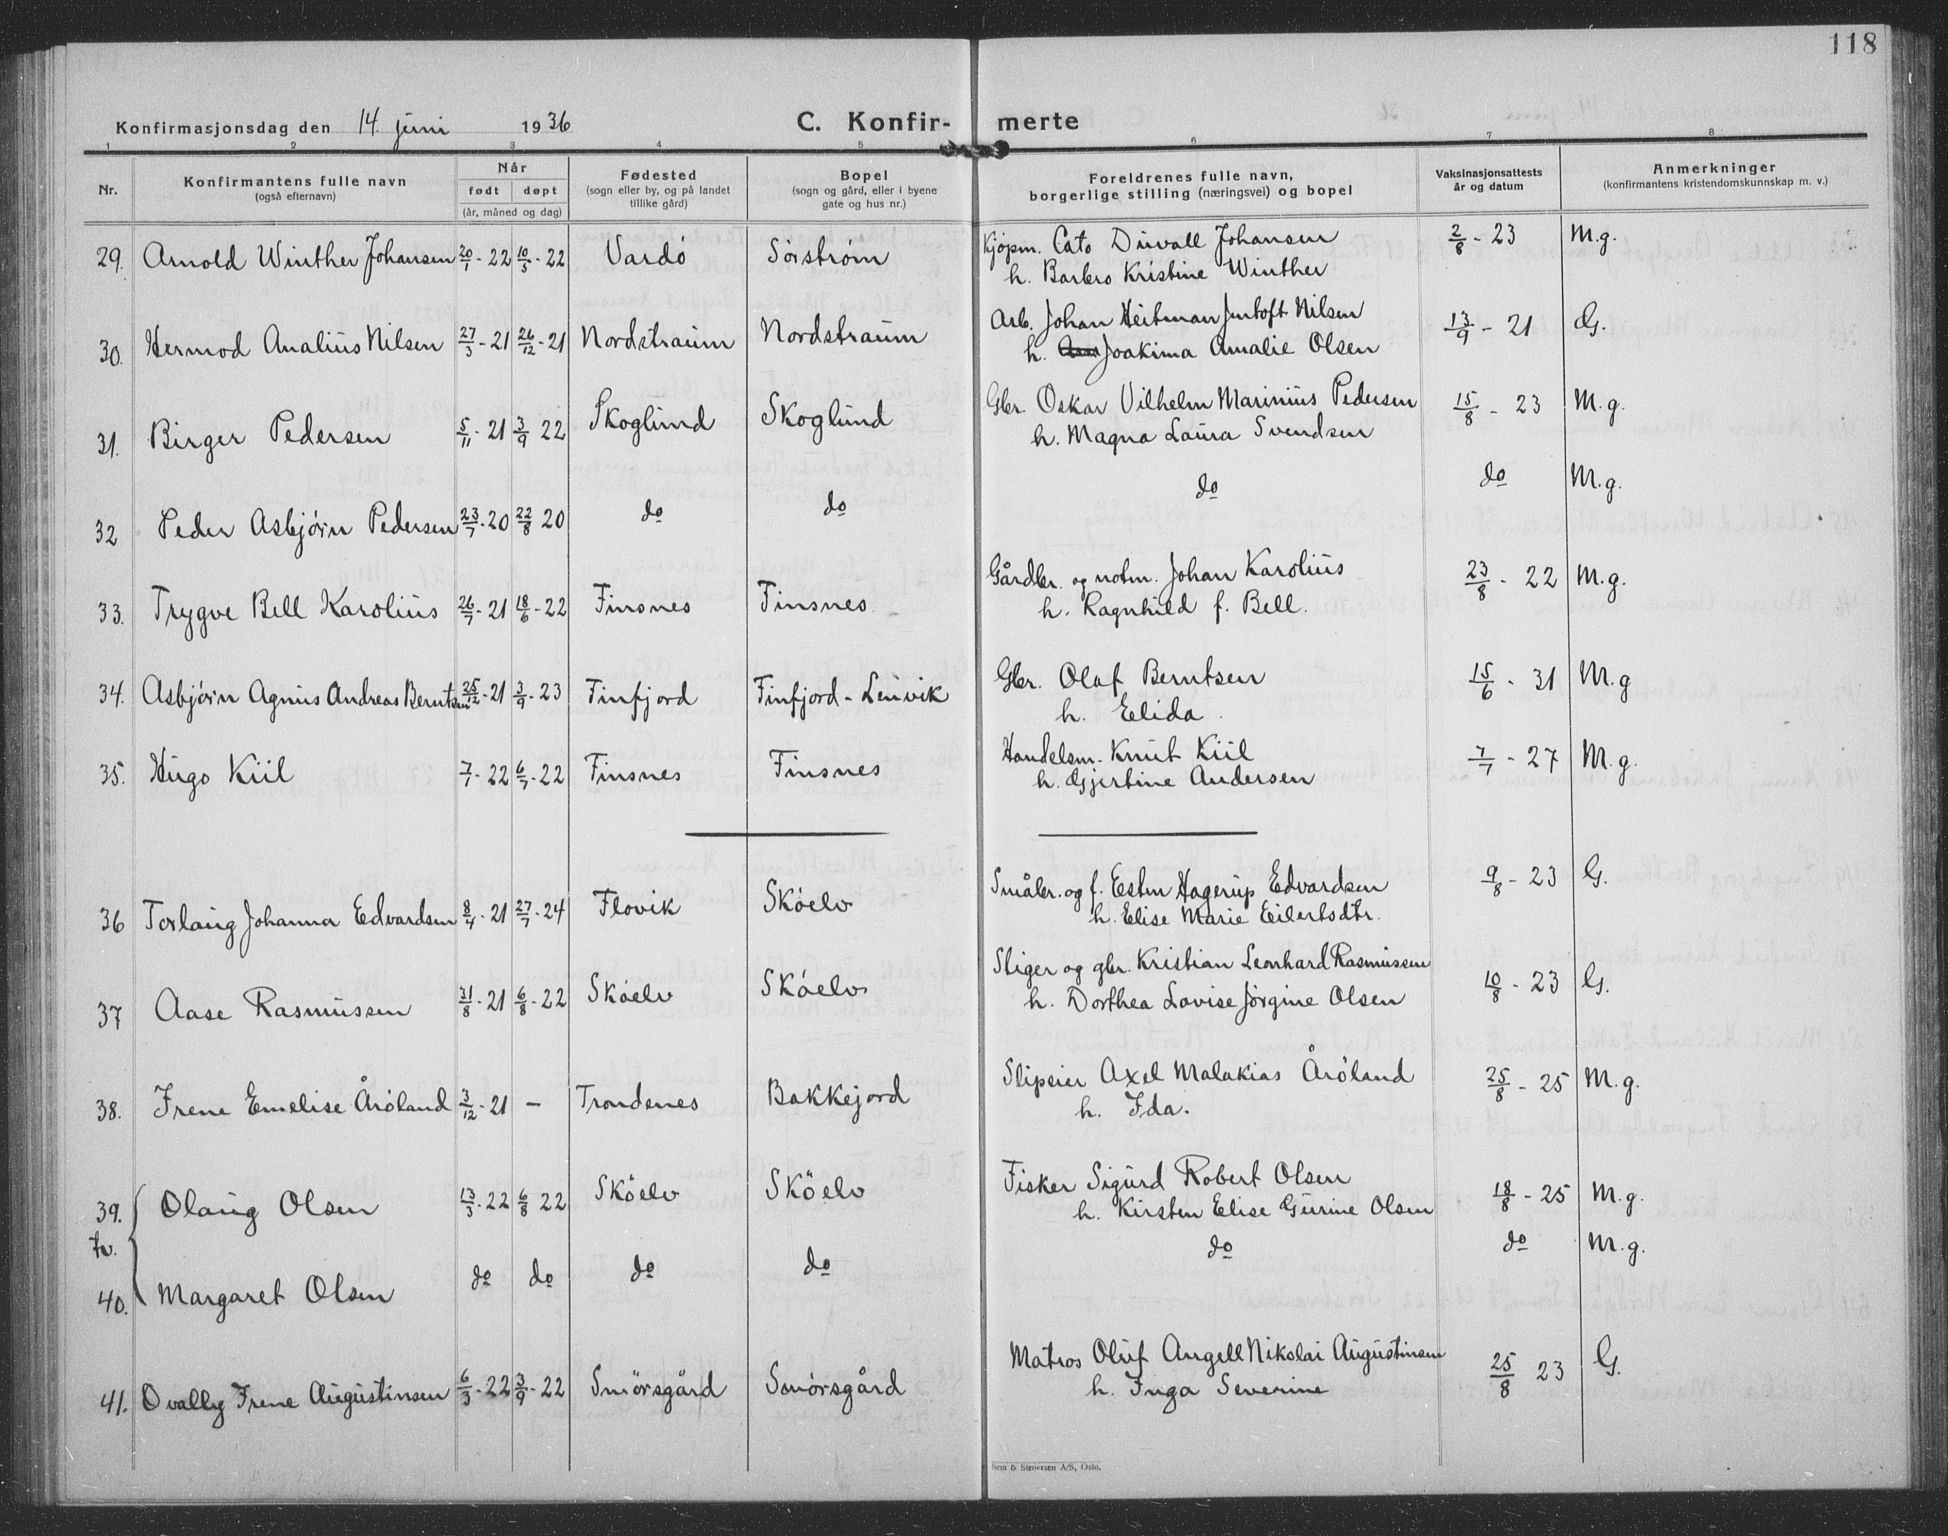 118
Konfirmasjonsdag den 14. juni 1936
C. Konfir- merte
1 2 3 4 5 6 7 8
Nr. Konfirmantens fulle navn (også efternavn) Når født døpt (år, måned og dag) Fødested (sogn eller by, og på landet tillike gård) Bopel (sogn og gård, eller i byene gate og hus nr.) Foreldrenes fulle navn, borgerlige stilling (næringsvei) og bopel Vaksinasjonsattests år og datum Anmerkninger (konfirmantens kristendomskunnskap m. v.)
29. Arnold Winther Johansen 20/1-22 10/5-22 Vardö Sörstrøm Kjöpm. Cato Duvall Johansen 2/8-23 M.g.
h. Barbro Kristine Winther
30. Hermod Analius Nilsen 27/3-21 26/12-21 Nordstraum Nordstraum Arb. Johan Heitman Jentoft Nilsen 13/9-21 G.
h. Joakima Amalie Olsen
31. Birger Pedersen 5/11-21 3/9 22 Skoglund Skoglund Gbr. Oskar Vilhelm Marinius Pedersen 15/8-23 M.g.
h. Magna Laura Svendsen
32 Peder Asbjörn Pedersen 23/7-20 22/8 20 do do do do M.g.
33. Trygve Bell Karolius 26/7-21 18/6-22 Finsnes Finsnes Gårdbr. og notm. Johan Karolius 23/8-22 M.g.
h. Ragnhild f. Bell.
34. Asbjörn Agnus Andreas Berntsen 25/12-21 3/9-23 Finfjord Finfjord-Lenvik Gbr. Olaf Berntsen 15/6-31 M.g
h. Elida.
35. Hugo Kiil 7-22 6/7-22 Finsnes Finsnes Handelsm. Knut Kiil 7/7-27 M.g.
h. Gjertine Andersen
36 Torlaug Johanna Edvardsen 8/4-21 27/7-24 Flovik Sköelv Småbr. og f. Esten Hagerup Edvardsen 9/8-23 G.
h. Elise Marie Eilertsdtr.
37 Aase Rasmussen 31/8-21 6/8-22 Sköelv Sköelv Stiger og gbr. Kristian Leonhard Rasmussen 10/8-23 G.
h. Dorthea Lovise Jørgine Olsen
38. Irene Emelise Åröland 3/12-21 - Trondenes Bakkejord Slipeier Axel Malakias Åröland 25/8-25 M.g.
h. Ida.
39. Olaug Olsen 13/3-22 6/8 22 Sköelv Sköelv Fisker Sigurd Robert Olsen 18/8-25 M.g.
h. Kirsten Elise Gurine Olsen
Tv.
40. Margaret Olsen do do do do do do M.g.
41. Ovally Irene Augustinsen 6/3-22 3/9-22 Smörsgård Smörsgård Matros Oluf Angell Nikolai Augustinsen 25/8 23 G.
h. Inga Severine
Sem & Stenersen A/S, Oslo.